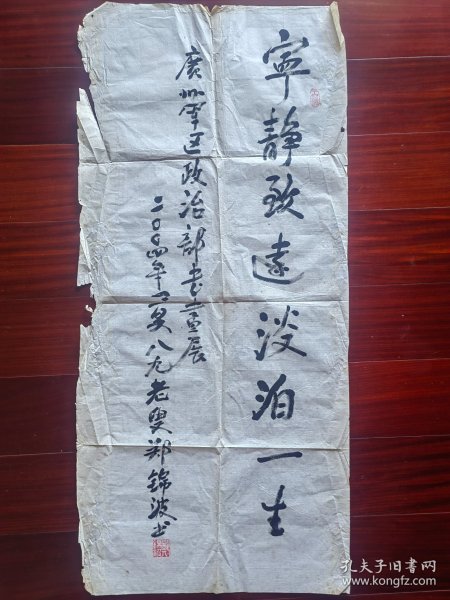 寧靜致遠淡泊一生
廣州軍区政治部書畫展
二〇〇四年一关八九老叟郑錦波书
孔夫子旧书网
www.kongfz.com